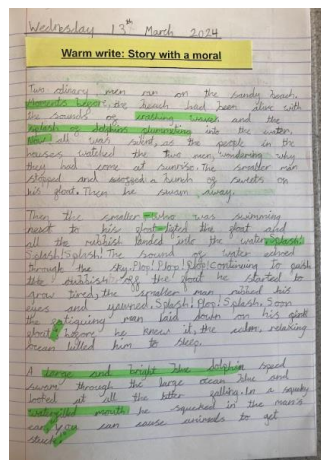 Wednesday 13th March 2024
Warm write: Story with a moral
Two ordinary men ran on the sandy beach.
Moments before, the beach had been alive with
the sounds of crashing waves and the
splash of dolphins plummeting into the water.
Now all was silent, as the people in the
houses watched the two men, wondering why
they had come at sunrise. The smaller man
stopped and a bunch of sweets on
his float. Then he swam away.
Then the smaller - who was swimming
next to his float - lifted the float and
all the rubbish landed into the water. Splash!
Splash! Splash! The sound of water echoed
through the sky. Plop! Plop! Plop! Continuing to push
the rubbish off the float he started to
grow tired, the smaller man rubbed his
eyes and yawned. Splash! Plop! Splash. Soon
the man laid down on his
float, before he knew it, the calm, relaxing
ocean lulled him to sleep.
A large and bright blue dolphin speed
swam through the large ocean blue and
looked at all the litter falling. In a squeaky
mouth he squeaked in the man's
ear, you can cause animals to get
stuck."